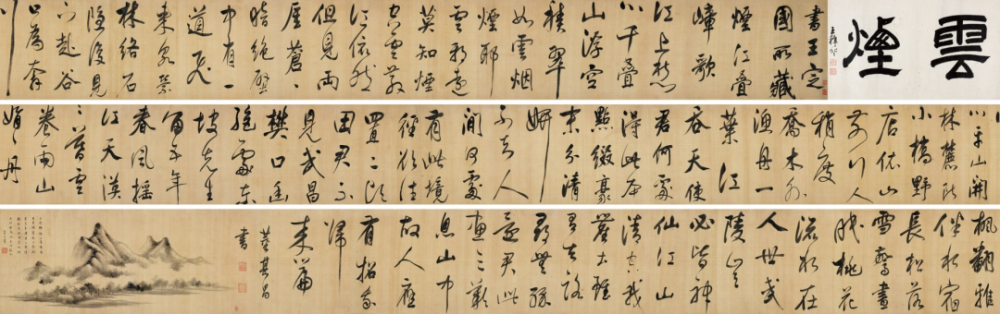 雲煙
書王定
國所藏
煙江疊
嶂歌
江上愁
心千疊
山浮空
積翠
如雲烟
煙耶
雲耶遠
莫知煙
空雲散
山依然
但見兩
崖蒼〻
暗絕壁
中有百
道飛
來泉縈
林絡石
隱復見
下赴谷
口為奔
川
川平山開
林麓斷
小橋野
店依山
前行人
稍度
喬木外
漁舟一
葉江
吞天使
君何處
得此本
點綴豪
末分清
妍
不知人
間何處
有此境
徑欲往
置二頃
田君不
見武昌
樊口幽
絕處東
坡先生
留五年
春風搖
江天漠
〻暮雲
卷雨山
娟〻丹
楓翻鴉
伴水宿
長松落
雪驚晝
眠桃花
流水在
人世武
陵豈
必皆神
仙江山
清空我
塵土雖
有去路
尋無緣
還君此
畫三歎
息山中
故人應
有招我
歸
來篇
董其昌
書